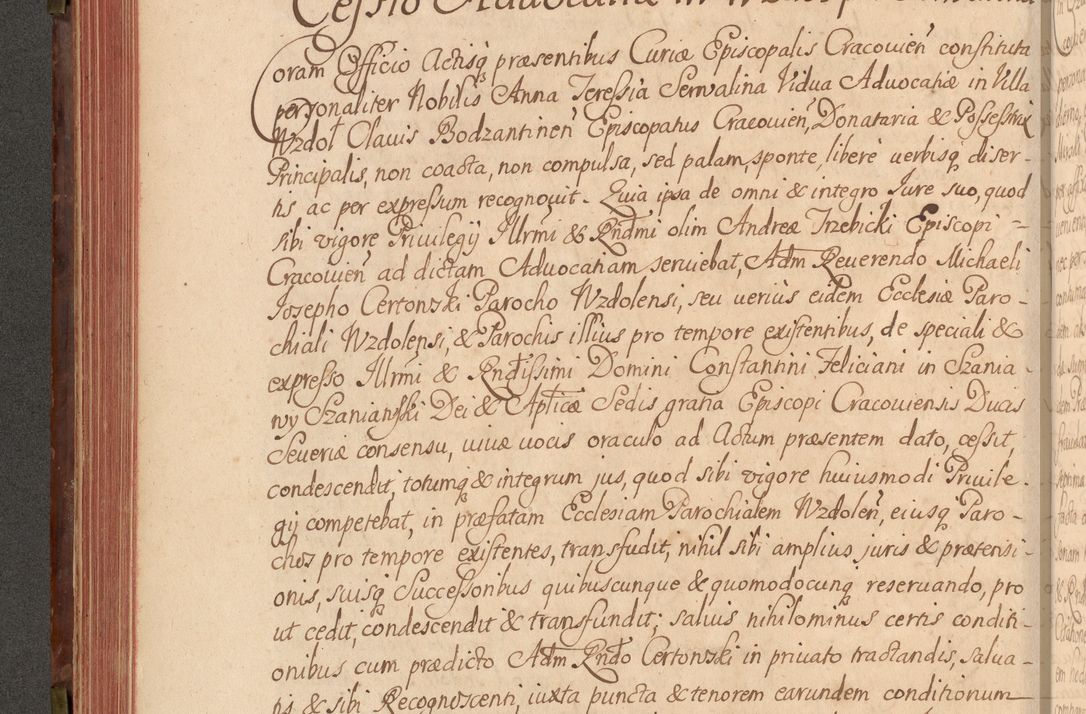 Cessio Advocatiæ in
Coram Officio Actisq præsentibus Curiæ Episcopalis Cracovień constituta
personaliter Nobilis Anna Teressia Servalina Vidua Advocatiæ in Villa
Wzdoł Clavis Bodzantineń Episcopatus Cracovień, Donataria & Possestrix
Principalis, non coacta, non compulsa, sed palam, sponte, libere verbisq diser-
tis ac per expressum recognovit. Quia ipsa de omni & integro Jure suo, quod
sibi vigore Privilegij Illrmi & Rndmi olim Andreæ Trzebicki Episcopi =
Cracovień ad dictam Advocatiam serviebat, Adm Reverendo Michaeli
Josepho Certonski Parocho Wzdolensi, seu verius eidem Ecclesiæ Paro-
chiali Wzdolensi, & Parochis illius pro tempore existentibus, de speciali &
expresso Illrmi & Rndissimi Domini Constantini Feliciani in Szania-
wy Szaniawski Dei & Aplicæ Sedis gratia Episcopi Cracoviensis Ducis
Severiæ consensu, vivæ vocis oraculo ad Actum præsentem dato, cessit,
condescendit, totumq & integrum jus, quod sibi vigore huiusmodi Privile-
gij competebat, in præfatam Ecclesiam Parochialem Wzdoleń, eiusq Paro-
chos pro tempore existentes, transfudit, nihil sibi amplius juris & prætensi-
onis, suisq Successoribus quibuscunque & quomodocunq reservando, pro
ut cedit, condescendit & transfundit; salvis nihilominus certis conditi-
onibus cum prædicto Adm Rndo Certonski in privato tractandis, salva-
tis & sibi Recognoscenti, iuxta puncta & tenorem earundem conditionum